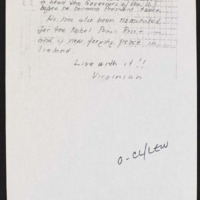 a dead the Governor of the U.S
before he became President,
He has also been nominated
for the Nobel Peace Prize
and is now forging peace in
Ireland.
Live with it!!
Virginian
O-CL/LEW